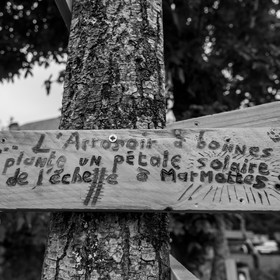 L'Arrosoir à bonnes
plante un pétale solaire
de l'échelle à Marmottes